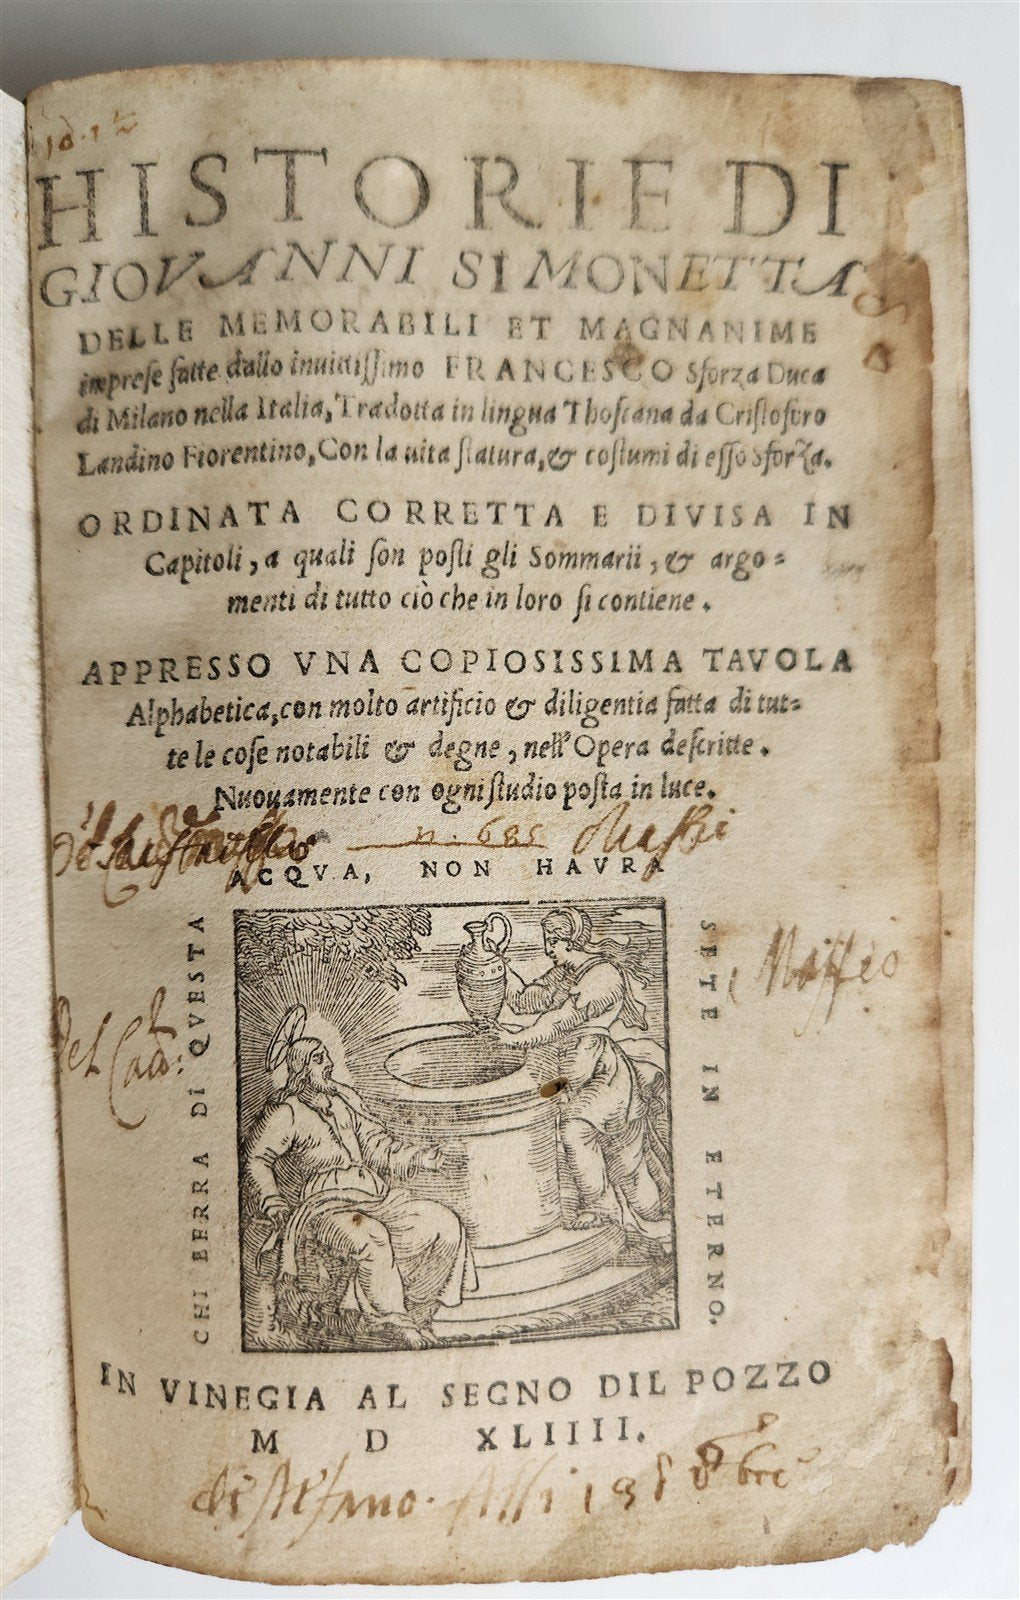 HISTORIE DI
GIOVANNI SIMONETTA
DELLE MEMORABILI ET MAGNANIME
imprese fatte dallo inuittissimo FRANCESCO Sforza Duca
di Milano nella Italia, Tradotta in lingua Thoscana da Cristoforo
Landino Fiorentino, Con la uita statura, & costumi di esso Sforza.
ORDINATA CORRETTA E DIVISA IN
Capitoli, a quali son posti gli Sommarii, & argo=
menti di tutto ciò che in loro si contiene.
APPRESSO VNA COPIOSISSIMA TAVOLA
Alphabetica, con molto artificio & diligentia fatta di tut=
te le cose notabili & degne, nell'Opera descritte.
Nuouamente con ogni studio posta in luce.
n. 685
CHI BERRA DI QVESTA
ACQVA, NON HAVRA
SETE IN ETERNO.
Maffeo
del
IN VINEGIA AL SEGNO DIL POZZO
M D XLIIII.
di stefano